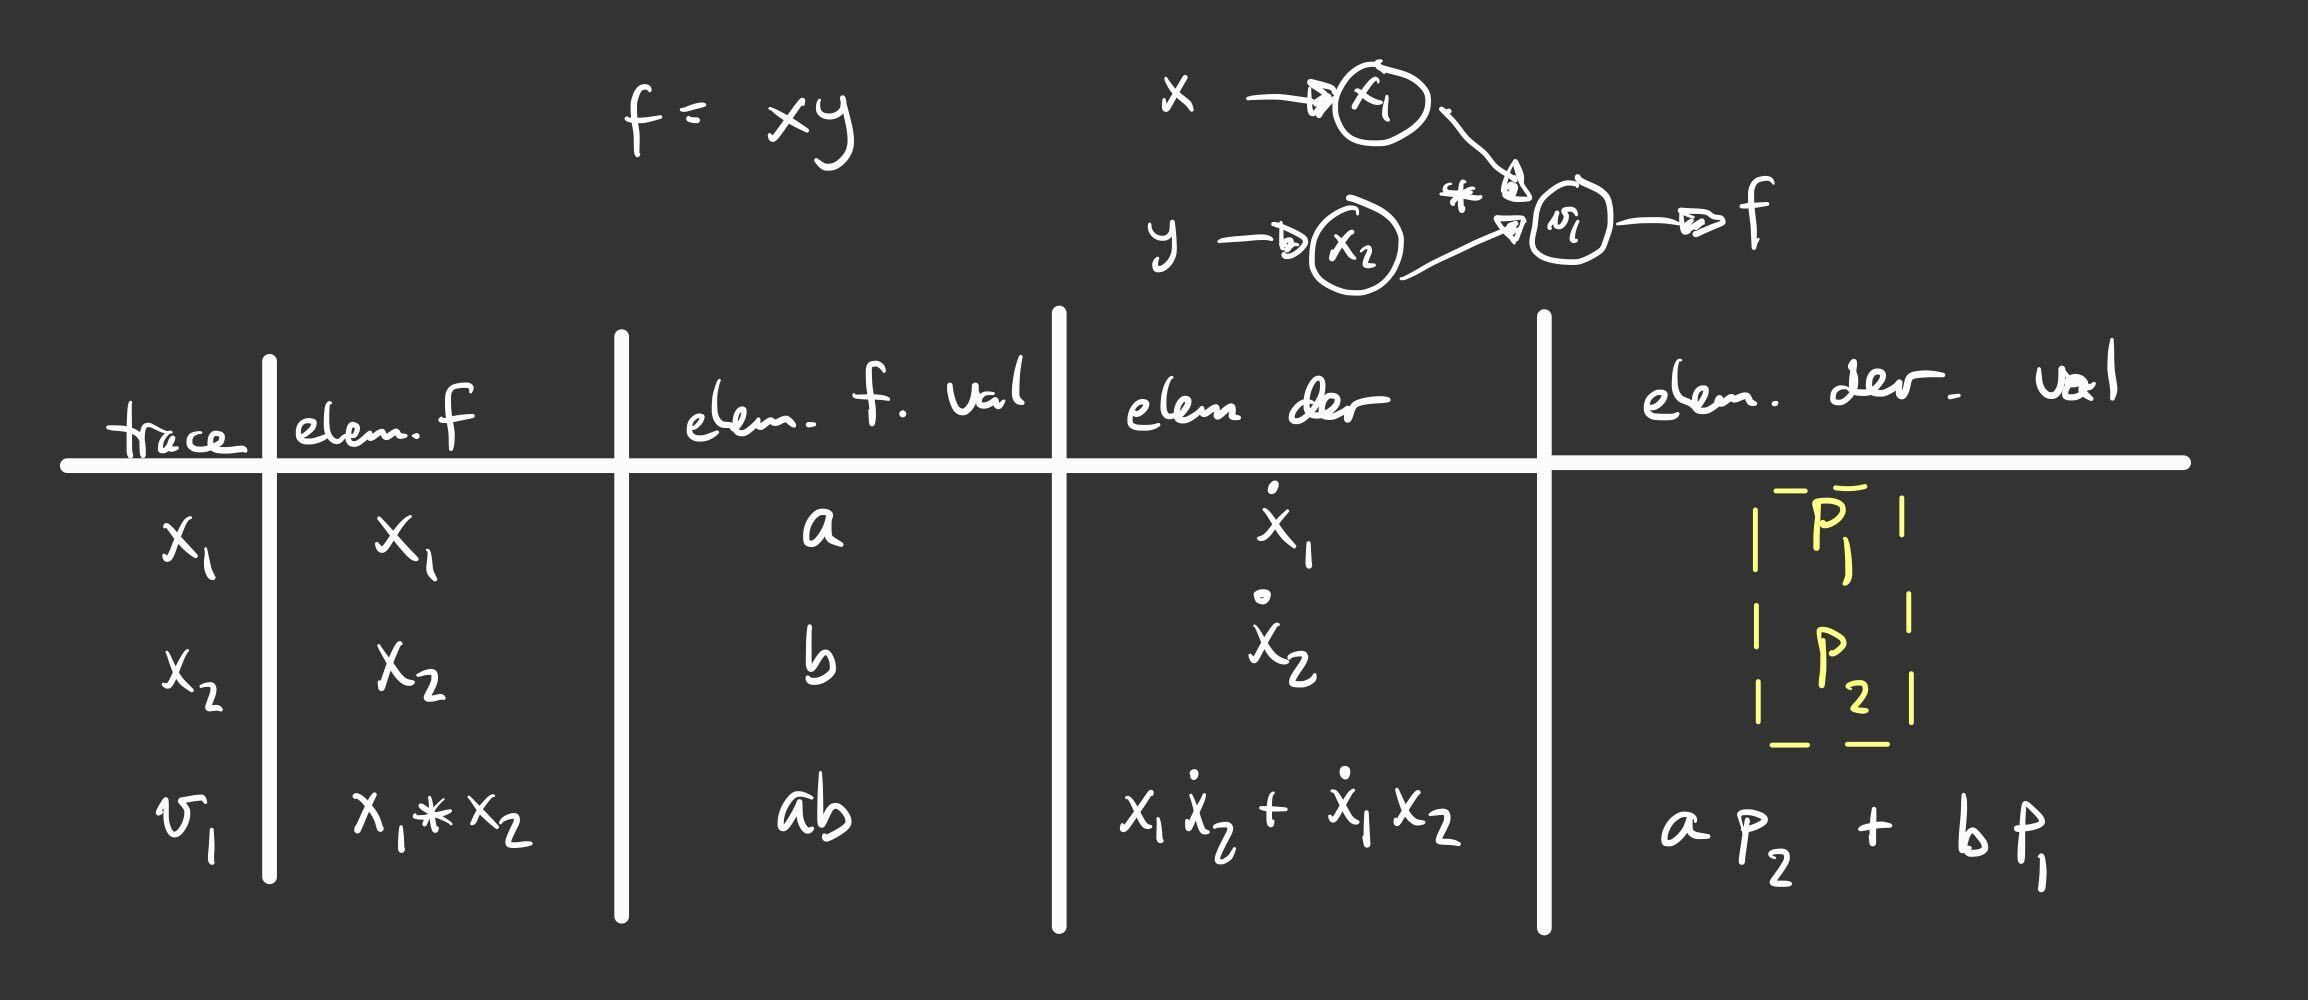 f = xy
x x₁
* v₁ f
y x₂
trace elem. f elem. f. val elem der elem. der. val
x₁ x₁ a ẋ₁ p₁
x₂ x₂ b ẋ₂ p₂
v₁ x₁*x₂ ab x₁ẋ₂ + ẋ₁x₂ a p₂ + b p₁